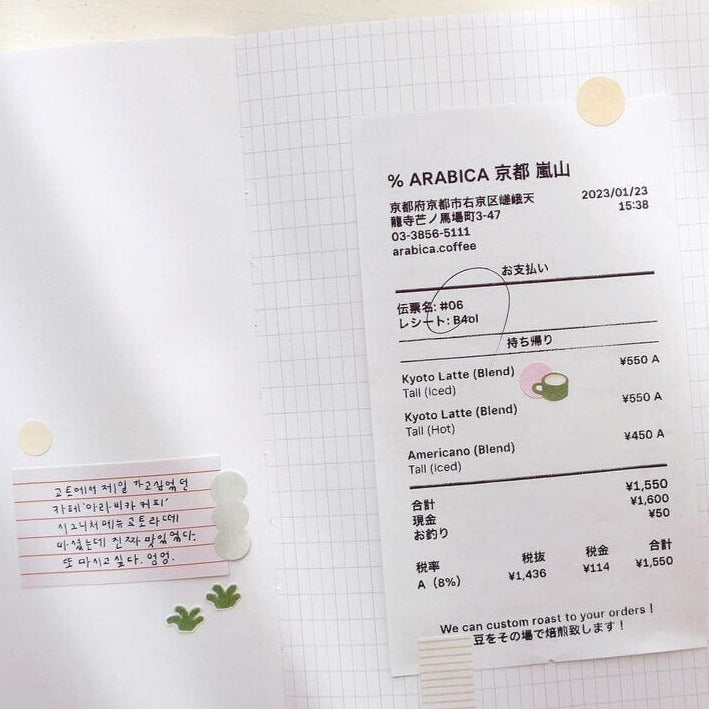 교토에서 제일 가고싶었던
카페 '아라비카 커피'
시그니처 메뉴 교토라떼
마셨는데 진짜 맛있었다.
또 마시고싶다. 엉엉.
% ARABICA 京都 嵐山
京都府京都市右京区嵯峨天
龍寺芒ノ馬場町3-47
03-3856-5111
arabica.coffee
2023/01/23
15:38
お支払い
伝票名: #06
レシート: B4ol
持ち帰り
Kyoto Latte (Blend) ¥550 A
Tall (iced)
Kyoto Latte (Blend) ¥550 A
Tall (Hot)
Americano (Blend) ¥450 A
Tall (Iced)
合計 ¥1,550
現金 ¥1,600
お釣り ¥50
税率 税抜 税金 合計
A (8%) ¥1,436 ¥114 ¥1,550
We can custom roast to your orders !
豆をその場で焙煎致します！